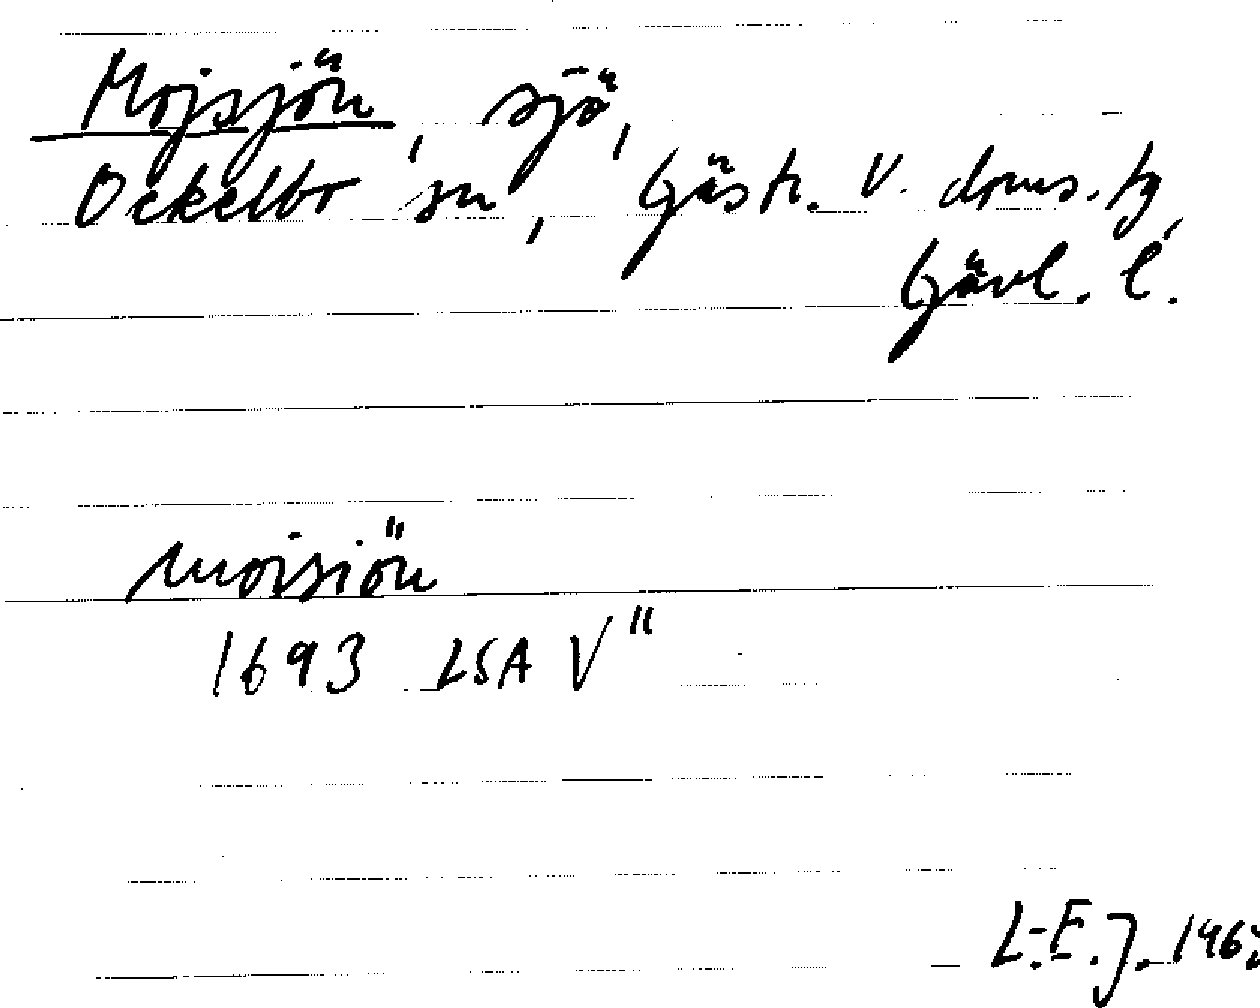 Mojsjön, sjö,
Ockelbo sn, Gästr. V. doms.hg,
Gävl. l.
moisiön
1693 LSA V"
L-E.J.